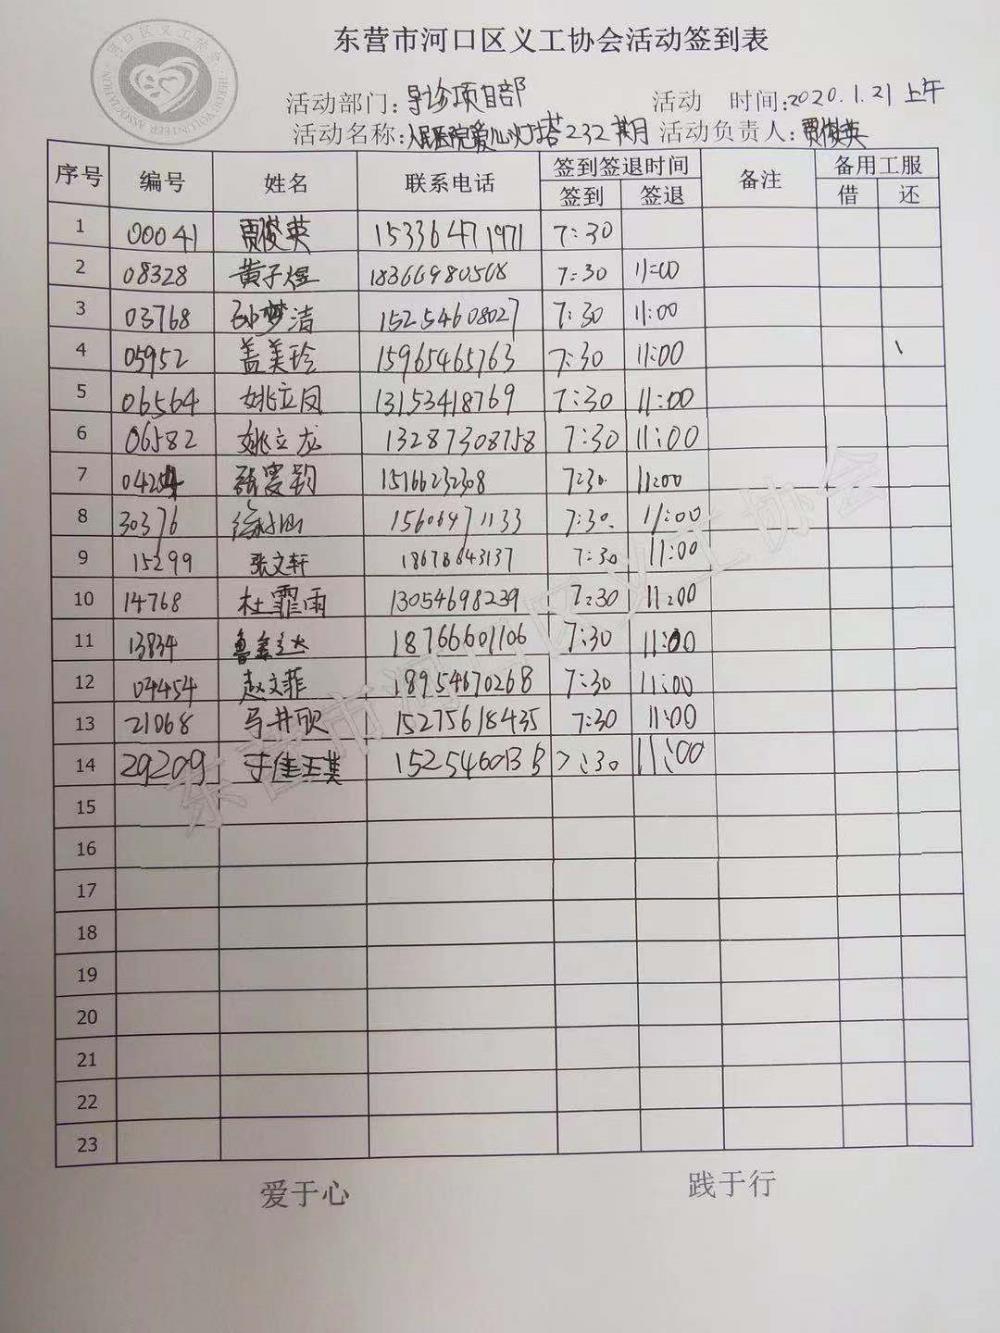 东营市河口区义工协会活动签到表
活动部门:导诊项目部 活动 时间:2020.1.21上午
活动名称:人民医院爱心灯塔232期 活动负责人:贾俊英
序号 编号 姓名 联系电话 签到签退时间 备注 备用工服
签到 签退 借 还
1 00041 贾俊英 15336471971 7:30
2 08328 黄子煜 18366980568 7:30 11:00
3 03768 孙梦洁 15254608027 7:30 11:00
4 05952 盖美玲 15965465763 7:30 11:00
5 06564 姚立凤 13153418769 7:30 11:00
6 06582 姚立龙 13287308758 7:30 11:00
7 15166232308 7:30 11:00
8 30376 15606471133 7:30 11:00
9 15299 张文轩 18678643137 7:30 11:00
10 14768 杜霏雨 13054698239 7:30 11:00
11 13834 18766601106 7:30 11:00
12 04454 赵文菲 18954670268 7:30 11:00
13 21068 马井欣 15275618435 7:30 11:00
14 29209 7:30 11:00
15
16
17
18
19
20
21
22
23
爱于心 践于行
东营市河口区义工协会